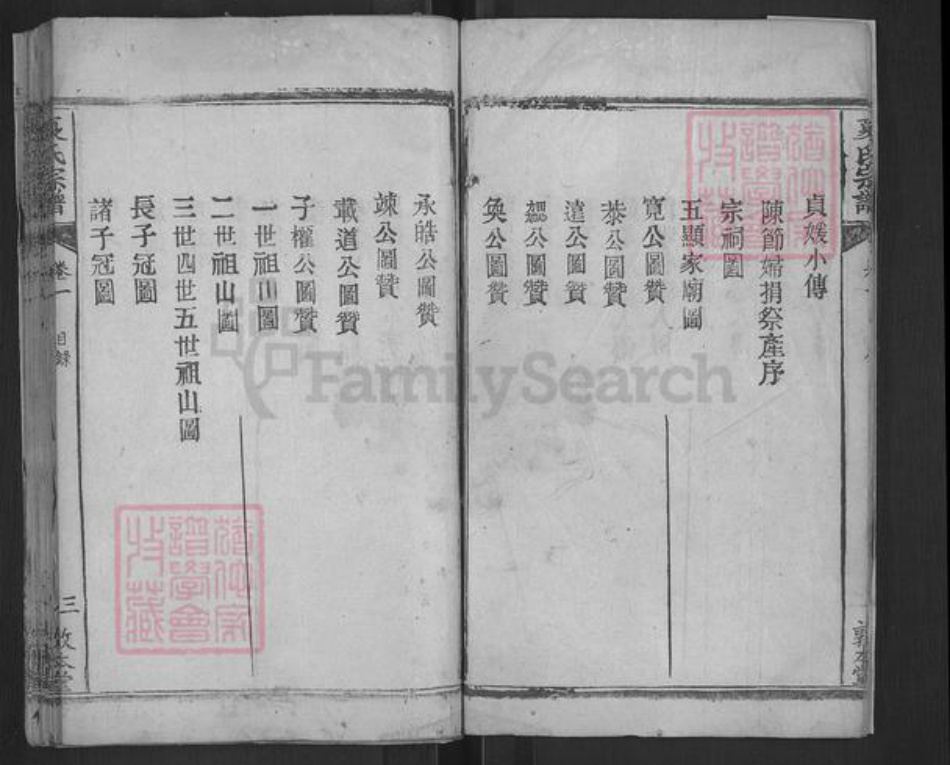 貞媛小傳
陳節婦捐祭產序
宗祠圖
五顯家廟圖
寬公圖贊
恭公圖贊
遠公圖贊
勰公圖贊
奐公圖贊
永皓公圖贊
竦公圖贊
載道公圖贊
子權公圖贊
一世祖山圖
二世祖山圖
三世四世五世祖山圖
長子冠圖
諸子冠圖
氏宗譜
卷一
目錄
三
FamilySearch